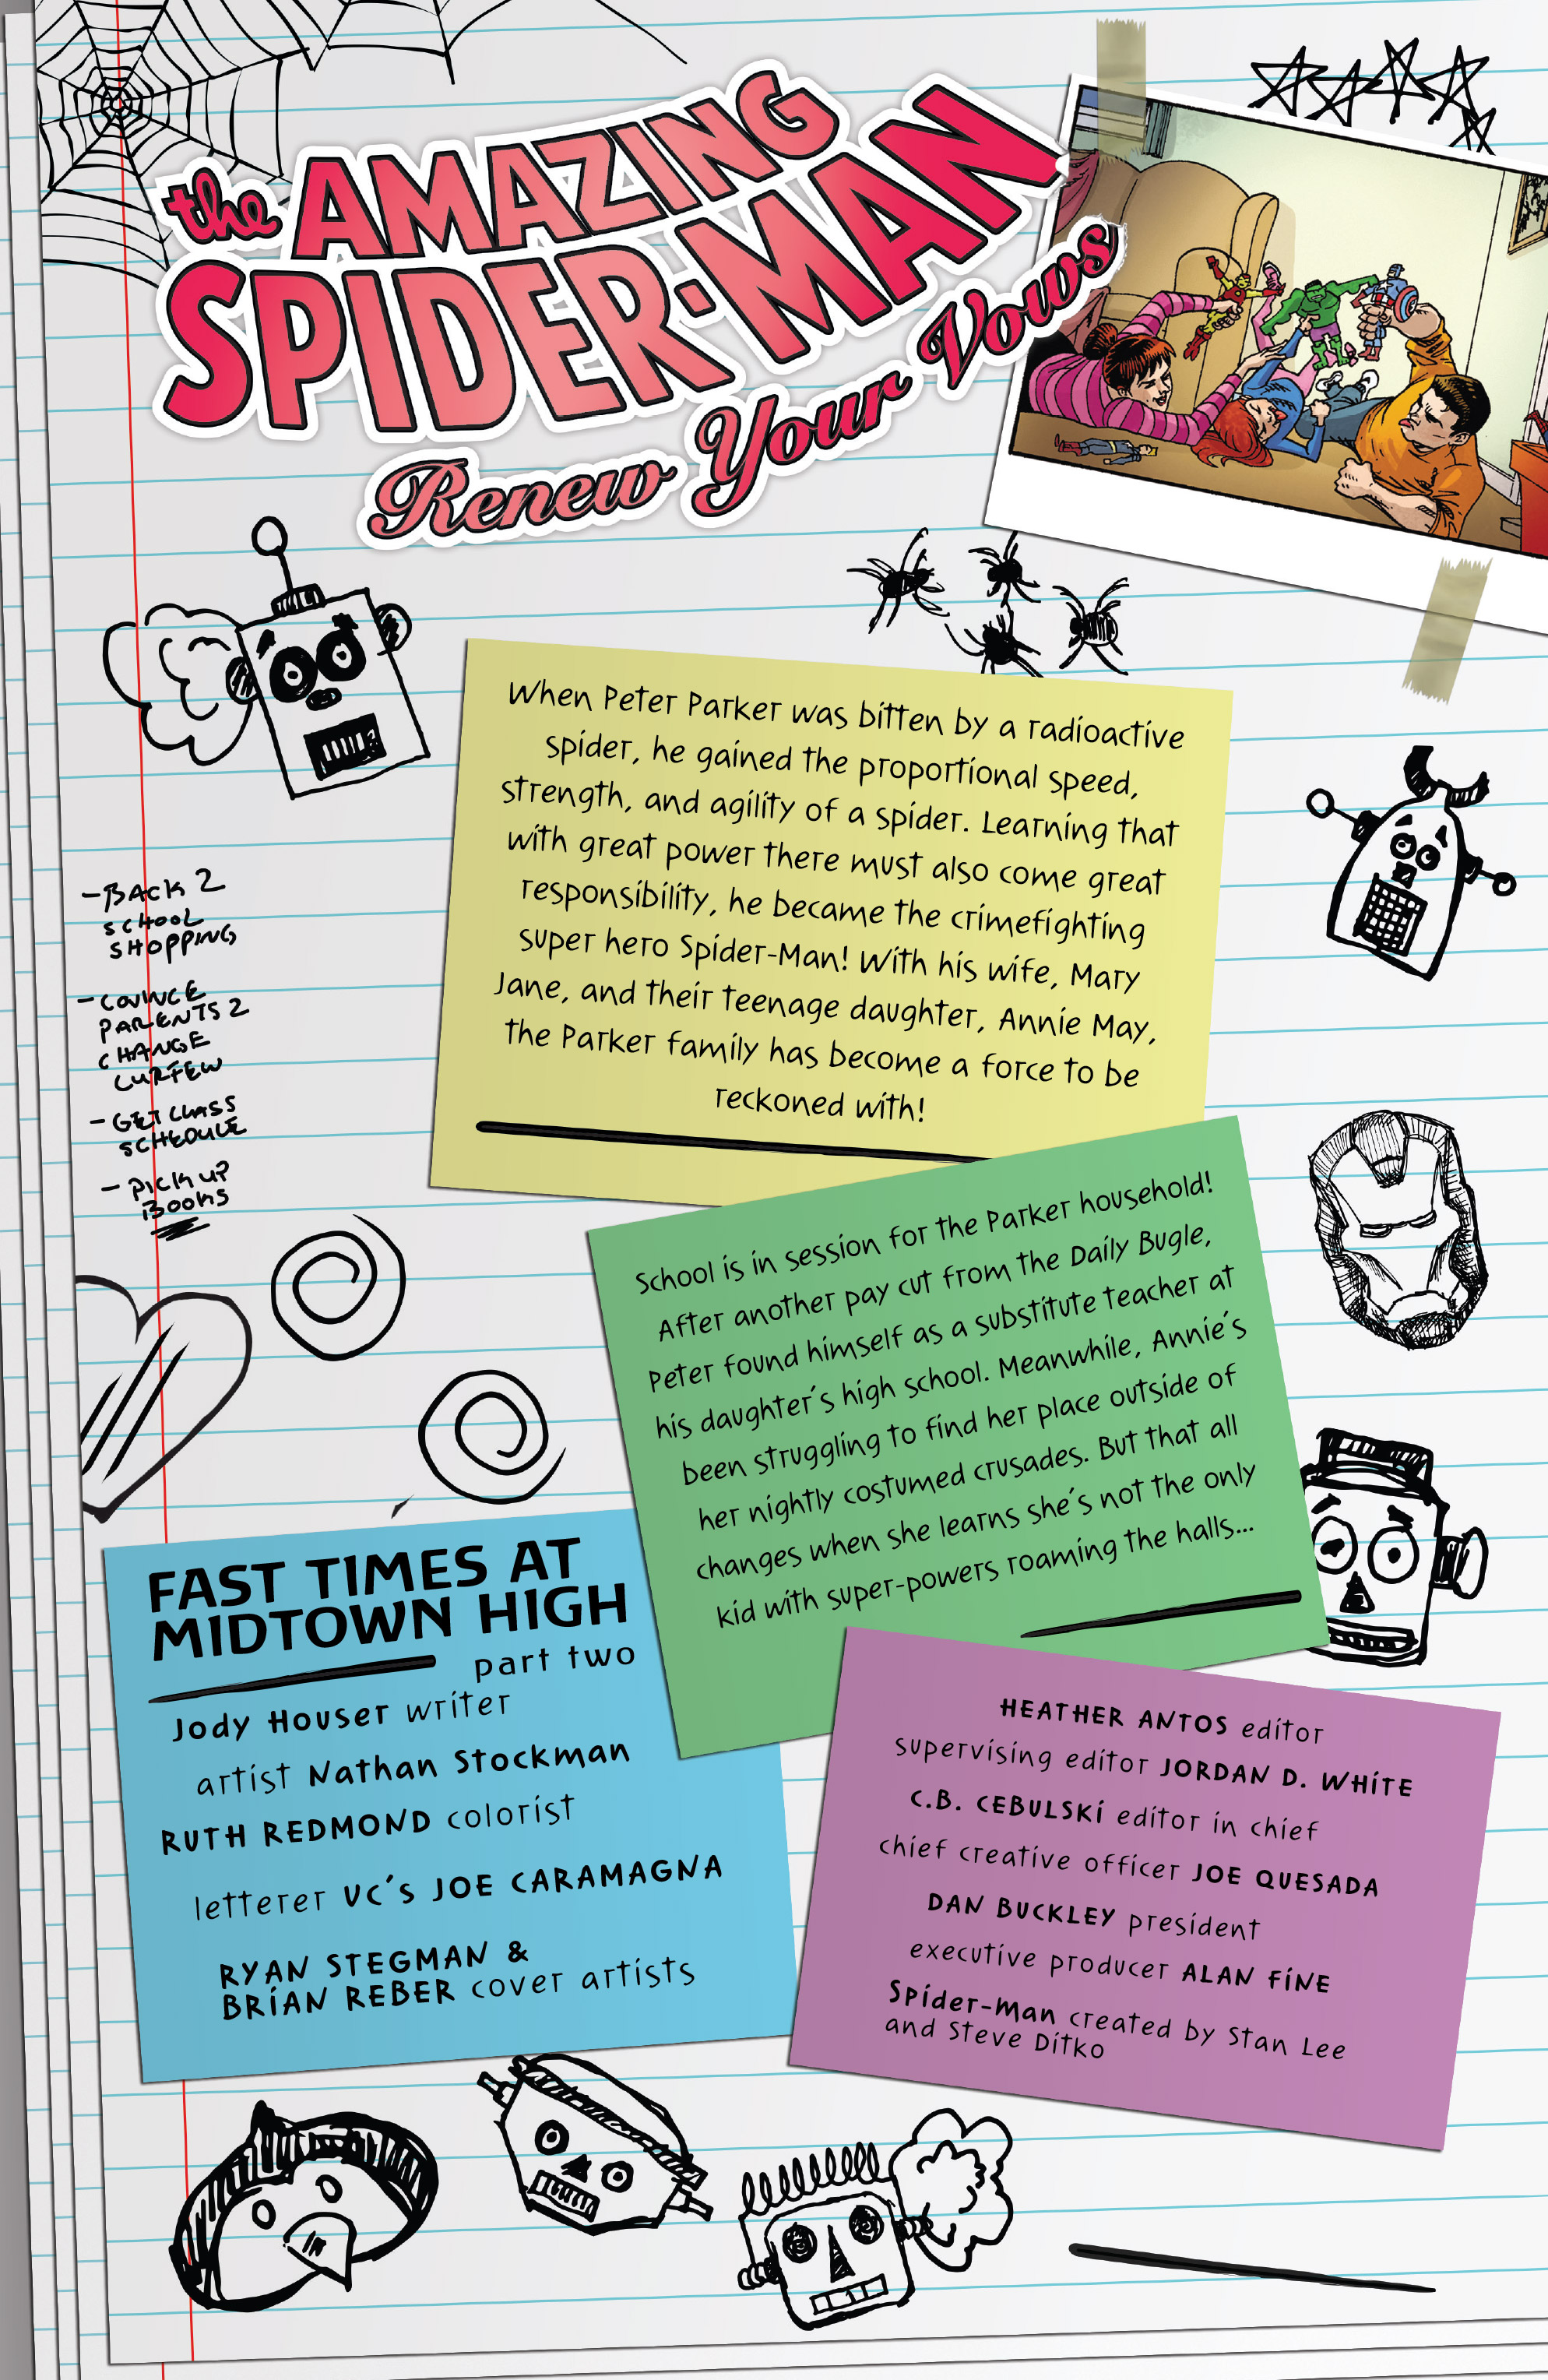 the AMAZING
SPIDER-MAN
Renew Your Vows
When Peter Parker was bitten by a radioactive
spider, he gained the proportional speed,
strength, and agility of a spider. Learning that
with great power there must also come great
responsibility, he became the crimefighting
super hero Spider-Man! With his wife, Mary
Jane, and their teenage daughter, Annie May,
the Parker family has become a force to be
reckoned with!
- BACK 2
SCHOOL
SHOPPING
- COVINCE
PARENTS 2
CHANGE
CURFEW
- GET CLASS
SCHEDULE
- PICK UP
BOOKS
School is in session for the Parker household!
After another pay cut from the Daily Bugle,
Peter found himself as a substitute teacher at
his daughter's high school. Meanwhile, Annie's
been struggling to find her place outside of
her nightly costumed crusades. But that all
changes when she learns she's not the only
kid with super-powers roaming the halls...
FAST TIMES AT
MIDTOWN HIGH
part two
Jody Houser writer
artist Nathan Stockman
RUTH REDMOND colorist
letterer VC's JOE CARAMAGNA
RYAN STEGMAN &
BRIAN REBER cover artists
HEATHER ANTOS editor
supervising editor JORDAN D. WHITE
C.B. CEBULSKI editor in chief
chief creative officer JOE QUESADA
DAN BUCKLEY president
executive producer ALAN FINE
Spider-Man created by Stan Lee
and Steve Ditko